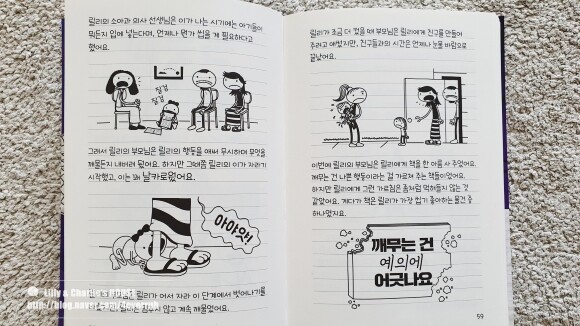 릴리의 소아과 의사 선생님은 이가 나는 시기에는 아기들이
뭐든지 입에 넣는다며, 언제나 뭔가 씹을 게 필요하다고
했어요.
질겅
질겅
그래서 릴리의 부모님은 릴리의 행동을 애써 무시하며 무엇을
깨물든지 내버려 뒀어요. 하지만 그때쯤 릴리의 이가 자라기
시작했고, 이는 꽤 날카로웠어요.
아야야!
릴리가 어서 자라 이 단계에서 벗어나기를
멈추지 않고 계속 깨물었어요.
Lilly & Charlie's BOOST
http://blog.naver.com/4everrish
릴리가 조금 더 컸을 때 부모님은 릴리에게 친구를 만들어
주려고 애썼지만, 친구들과의 시간은 언제나 눈물 바람으로
끝났어요.
이번에 릴리의 부모님은 릴리에게 책을 한 아름 사 주었어요.
깨무는 건 나쁜 행동이라는 걸 가르쳐 주는 책들이었어요.
하지만 릴리에게 그런 가르침은 좀처럼 먹혀들지 않는 것
같았어요. 게다가 책은 릴리가 가장 씹기 좋아하는 물건 중
하나였지요.
깨무는 건
예의에
어긋나요
59